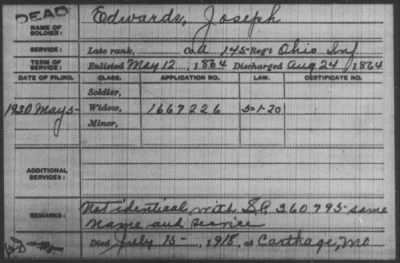 DEAD
NAME OF SOLDIER: Edwards, Joseph
SERVICE: Late rank, Co. A 145 Reg't Ohio Inf
TERM OF SERVICE: Enlisted May 12, 1864 Discharged Aug 24, 1864
DATE OF FILING. CLASS. APPLICATION NO. LAW. CERTIFICATE NO.
Soldier,
1930 May 5- Widow, 1667226 5-1-20
Minor,
ADDITIONAL SERVICES:
REMARKS: Not identical with S.C. 360795-same
name and service
Died July 15-, 1918, at Carthage, Mo